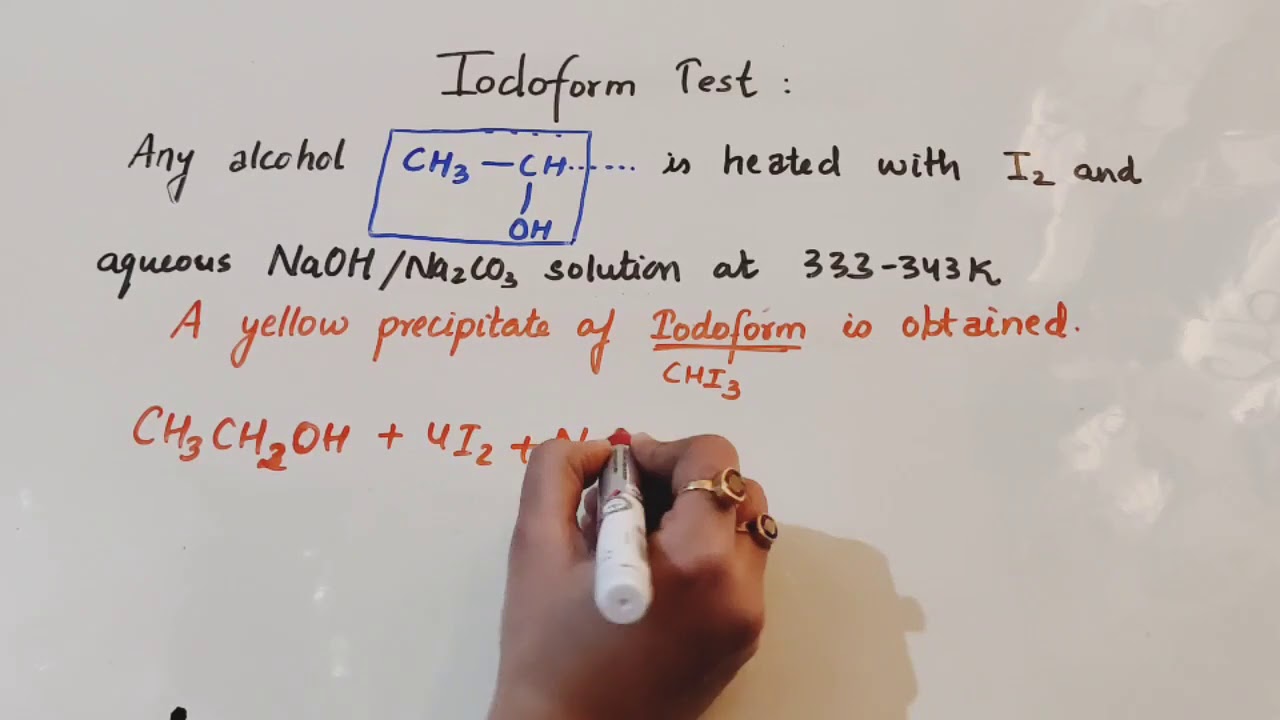 Iodoform Test :
Any alcohol CH₃ — CH...... is heated with I₂ and
OH
aqueous NaOH/Na₂CO₃ solution at 333-343K
A yellow precipitate of Iodoform is obtained.
CHI₃
CH₃CH₂OH + 4I₂ +